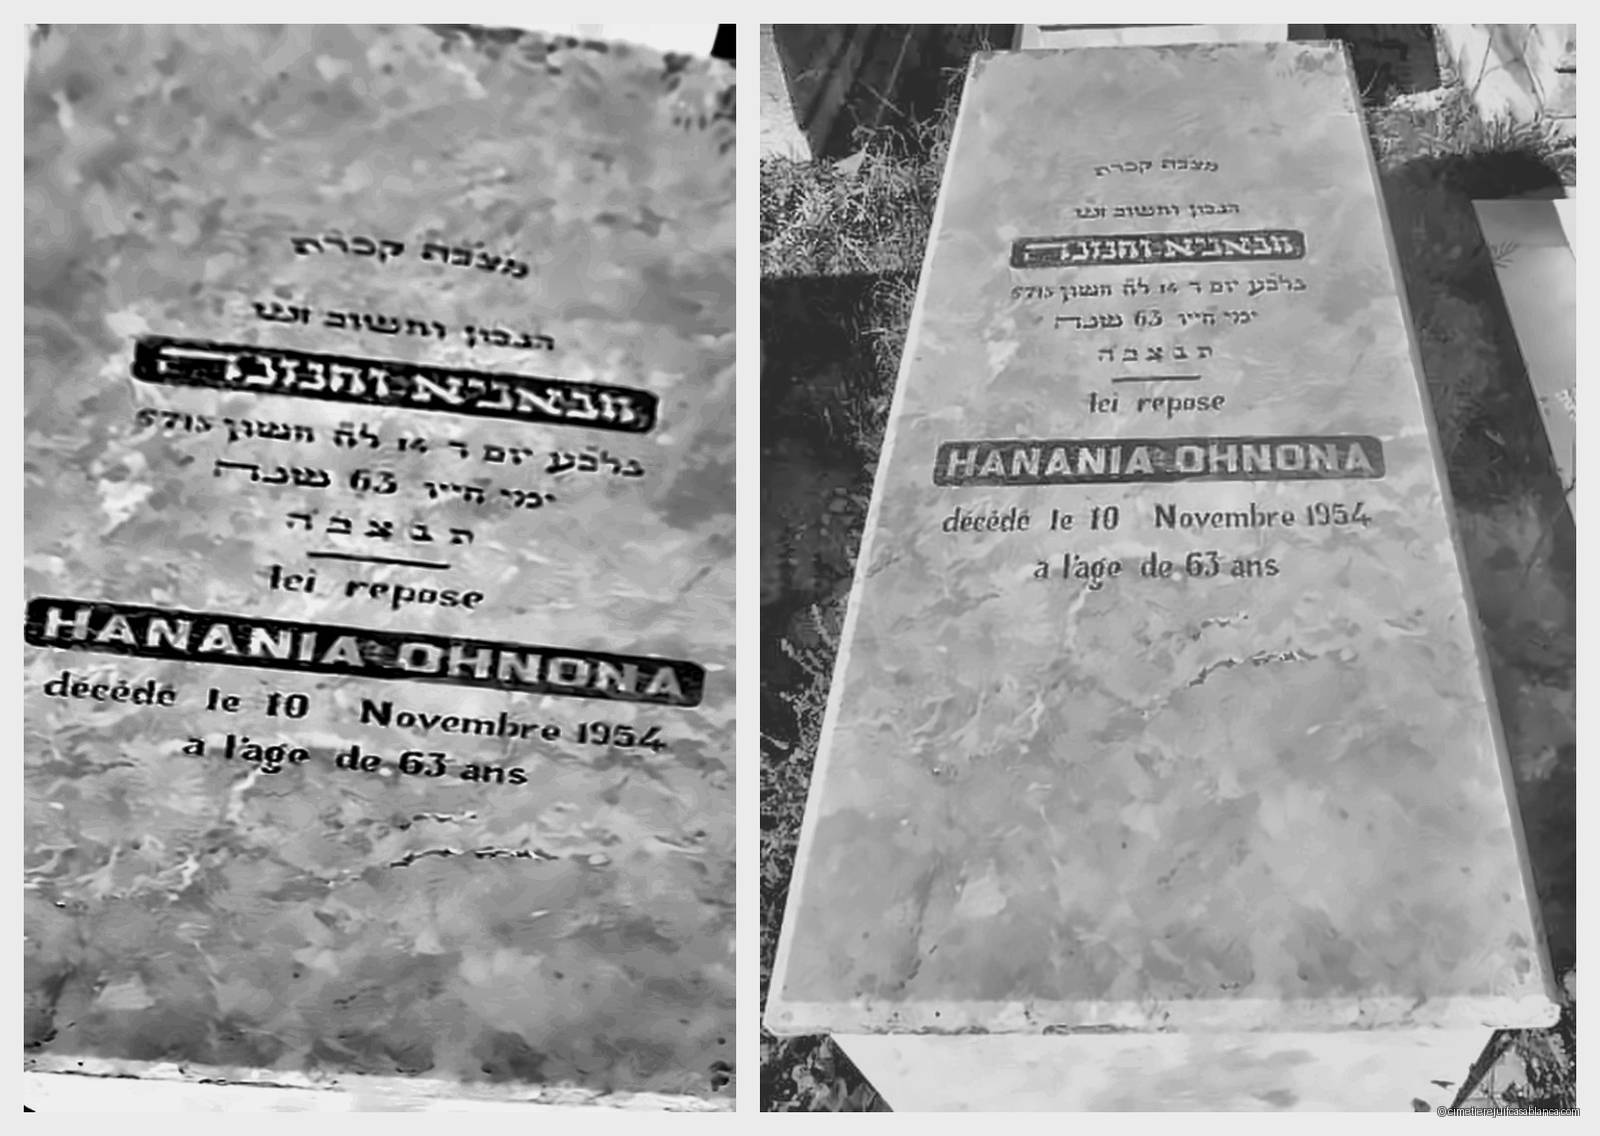 מצבת קבורת
הנבון וחשוב זש
חנאניא וחנונה
בלבע יום ד 14 לח חשון 5715
ימי חייו 63 שנה
ת נ צ ב ה
Ici repose
HANANIA OHNONA
décédé le 10 Novembre 1954
a l'age de 63 ans
מצבת קבורת
הנבון וחשוב זש
חנאניא וחנונה
בלבע יום ד 14 לח חשון 5715
ימי חייו 63 שנה
ת נ צ ב ה
Ici repose
HANANIA OHNONA
décédé le 10 Novembre 1954
a l'age de 63 ans
©cimetierejuifcasablanca.com